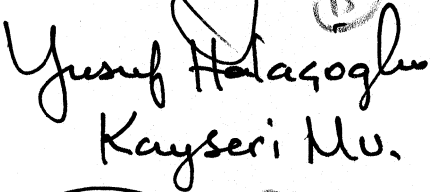 Yusuf Halaçoğlu
Kayseri Mv.